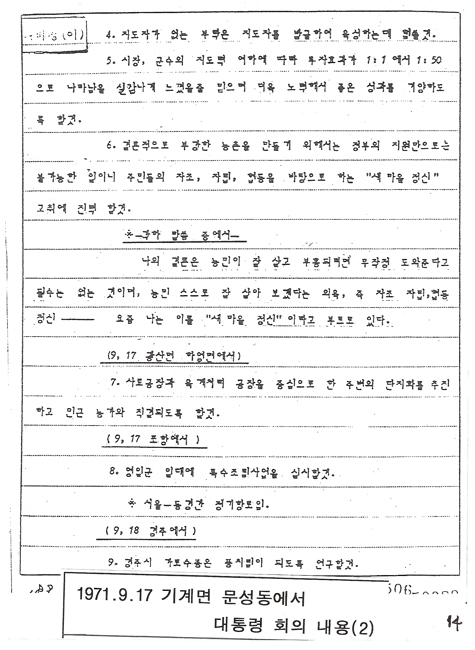 4. 지도자가 없는 부락은 지도자를 발굴하여 육성하는데 힘쓸것.
5. 시장, 군수의 지도력 여하에 따라 투자효과가 1:1 에서 1:50
으로 나타남을 실감나게 느꼈을줄 믿으며 더욱 노력해서 좋은 성과를 거양하도
록 할것.
6. 결론적으로 부강한 농촌을 만들기 위해서는 정부의 지원만으로는
불가능한 일이니 주민들의 자조, 자립, 협동을 바탕으로 하는 "새마을 정신"
고취에 진력 할것.
※ 각하 말씀 중에서
나의 결론은 농민이 잘 살고 부흥되려면 무작정 도와준다고
될수는 없는 것이며, 농민 스스로 잘 살아 보겠다는 의욕, 즉 자조 자립, 협동
정신 ── 요즘 나는 이를 "새마을 정신" 이라고 부르고 있다.
(9, 17 에서)
7. 사료공장과 육계처리 공장을 중심으로 한 주변의 단지화를 추진
하고 인근 농가와 직결되도록 할것.
(9, 17 포항에서)
8. 영일군 일대에 특수조림사업을 실시할것.
※ 서울-동경간 정기항로임.
(9, 18 경주에서)
9. 경주시 가로수종은 풍치림이 되도록 연구할것.
1971.9.17 기계면 문성동에서
대통령 회의 내용(2)
14